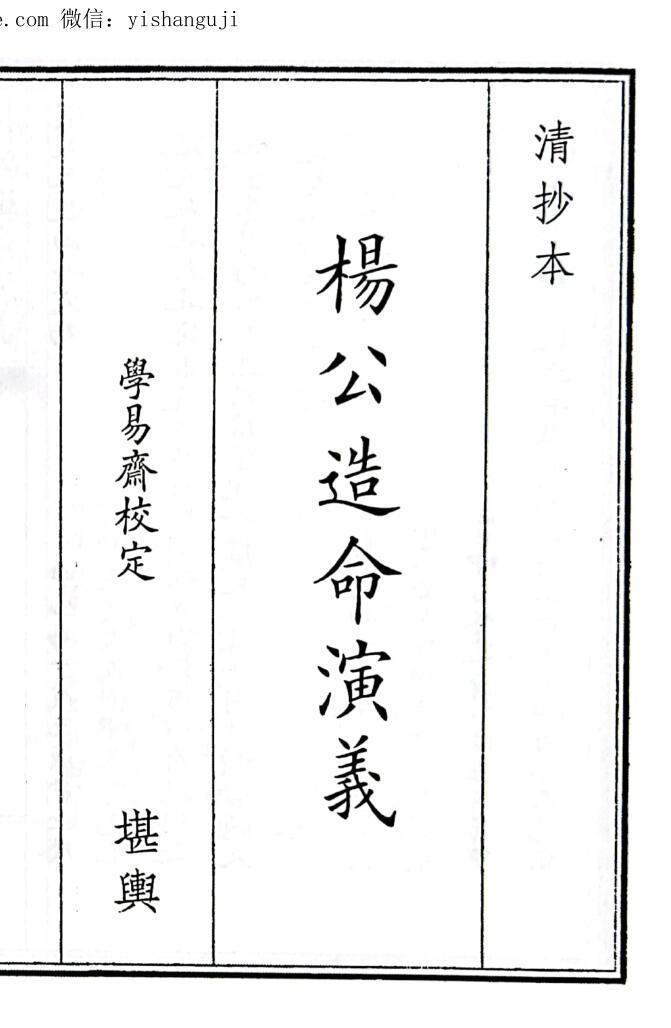 e.com 微信：yishanguji
清抄本
楊公造命演義
學易齋校定
堪輿